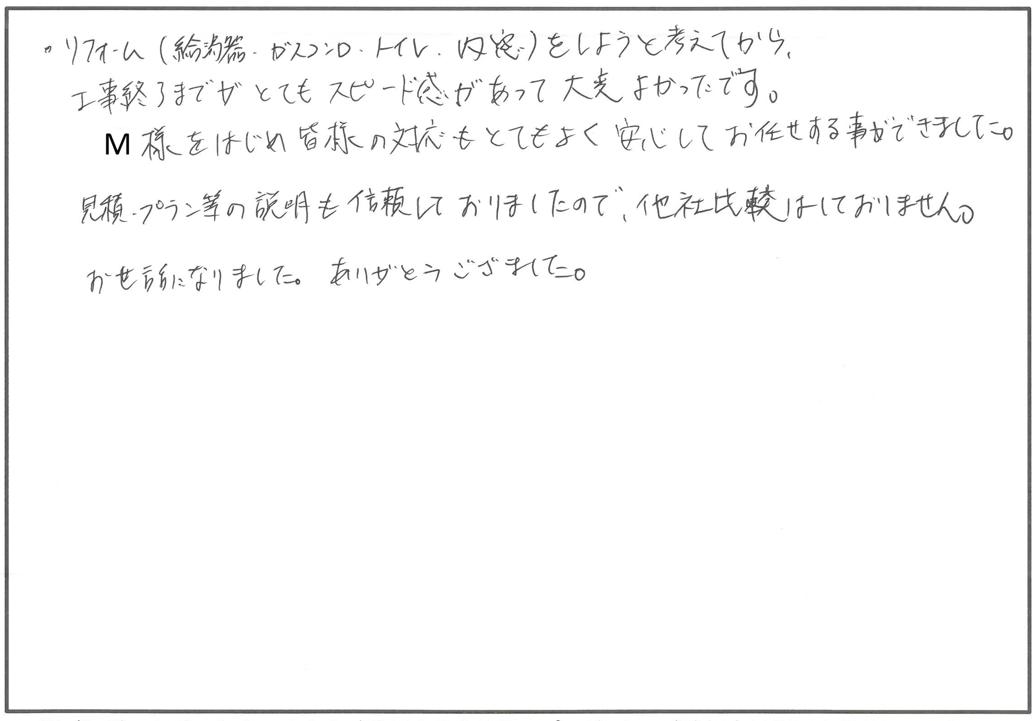 ・リフォーム(給湯器・ガスコンロ・トイレ・内窓)をしようと考えてから、
工事終了までがとてもスピード感があって大変よかったです。
M様をはじめ皆様の対応もとてもよく安心してお任せする事ができました。
見積・プラン等の説明も信頼しておりましたので、他社比較はしておりません。
お世話になりました。ありがとうございました。